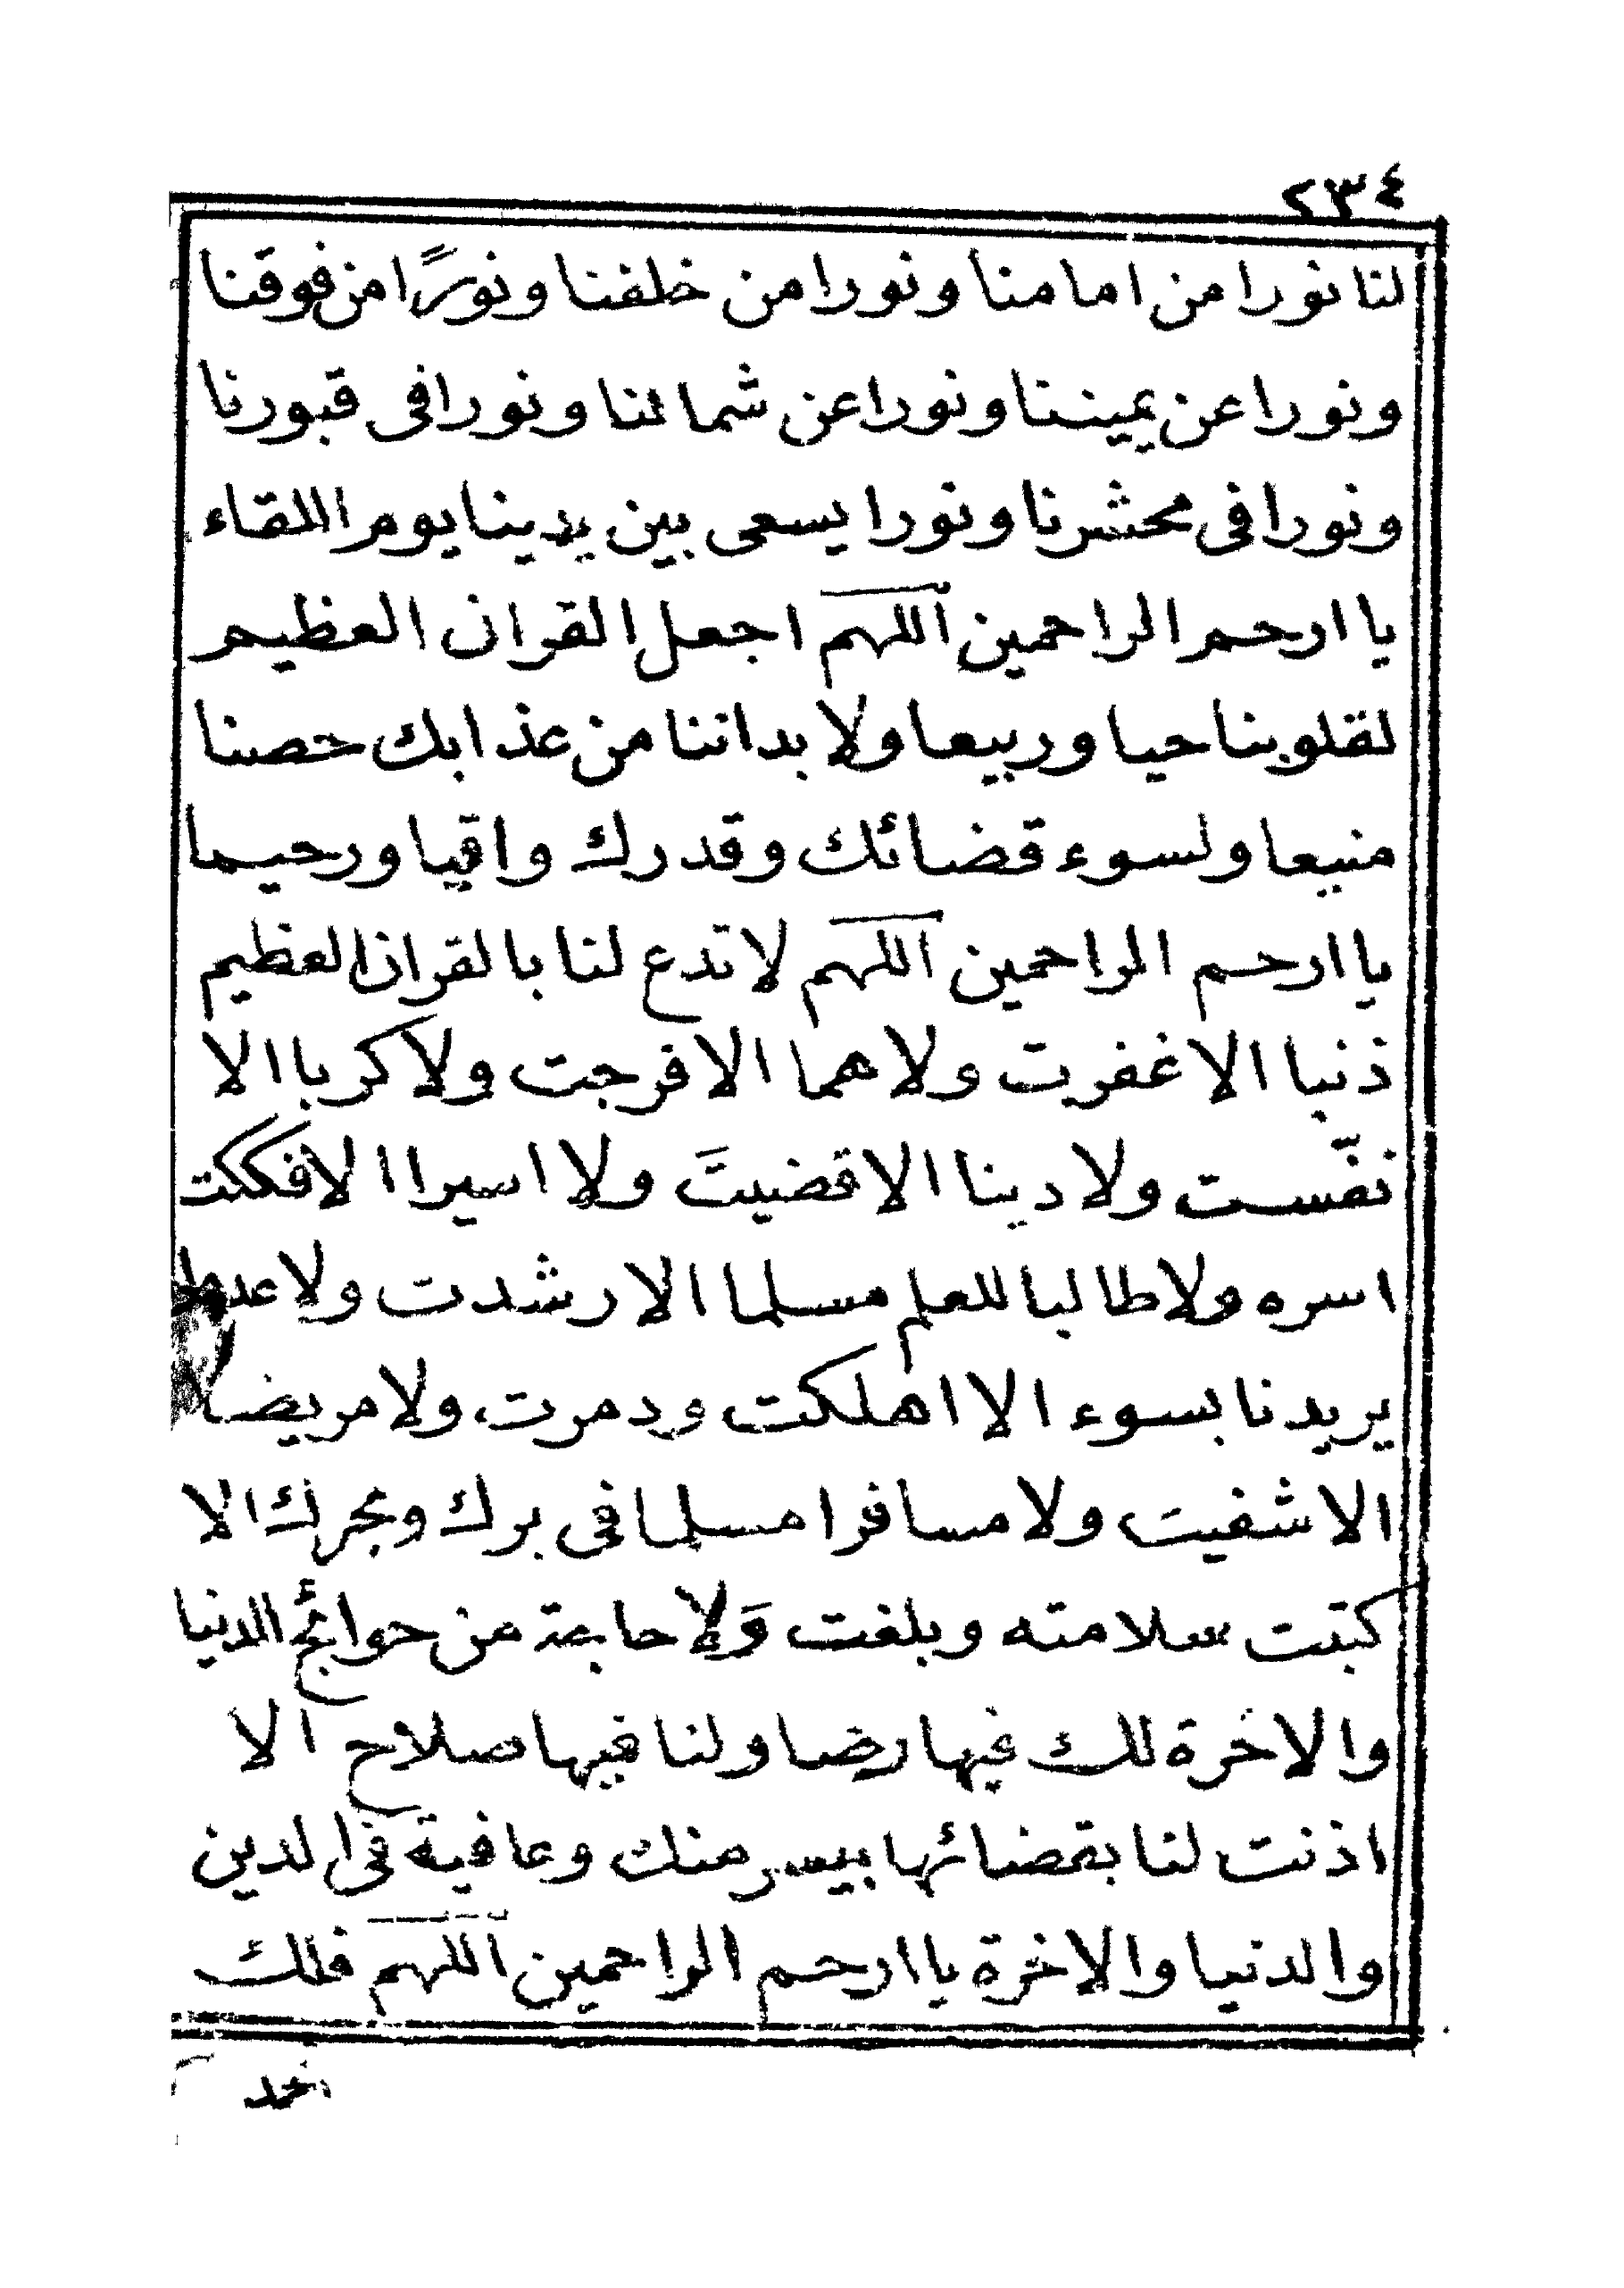 ٢٣٤
لنا نورا من امامنا ونورا من خلفنا ونورًا من فوقنا
ونورا عن يميننا ونورا عن شمائلنا ونورا فى قبورنا
ونورا فى محشرنا ونورا يسعى بين يدينا يوم اللقاء
يا ارحم الراحمين اللهم اجعل القران العظيم
لقلوبنا حيا وربيعا ولابداننا من عذابك حصنا
منيعا ولسوء قضائك وقدرك واقيا ورحيما
يا ارحم الراحمين اللهم لا تدع لنا بالقران العظيم
ذنبا الا غفرت ولا هما الا فرجت ولا كربا الا
نفّست ولا دينا الا قضيتَ ولا اسيرا الا فككت
اسره ولا طالبا للعلم مسلما الا رشدت ولا عدوا
يريدنا بسوء الا اهلكت ودمرت ولا مريضا
الا شفيت ولا مسافرا مسلما فى برك وبحرك الا
كتبت سلامته وبلغت وَلا حاجة من حوائج الدنيا
والاخرة لك فيها رضا ولنا فيها صلاح الا
اذنت لنا بقضائها بيسر منك وعافية فى الدين
والدنيا والاخرة يا ارحم الراحمين اللهم فلك